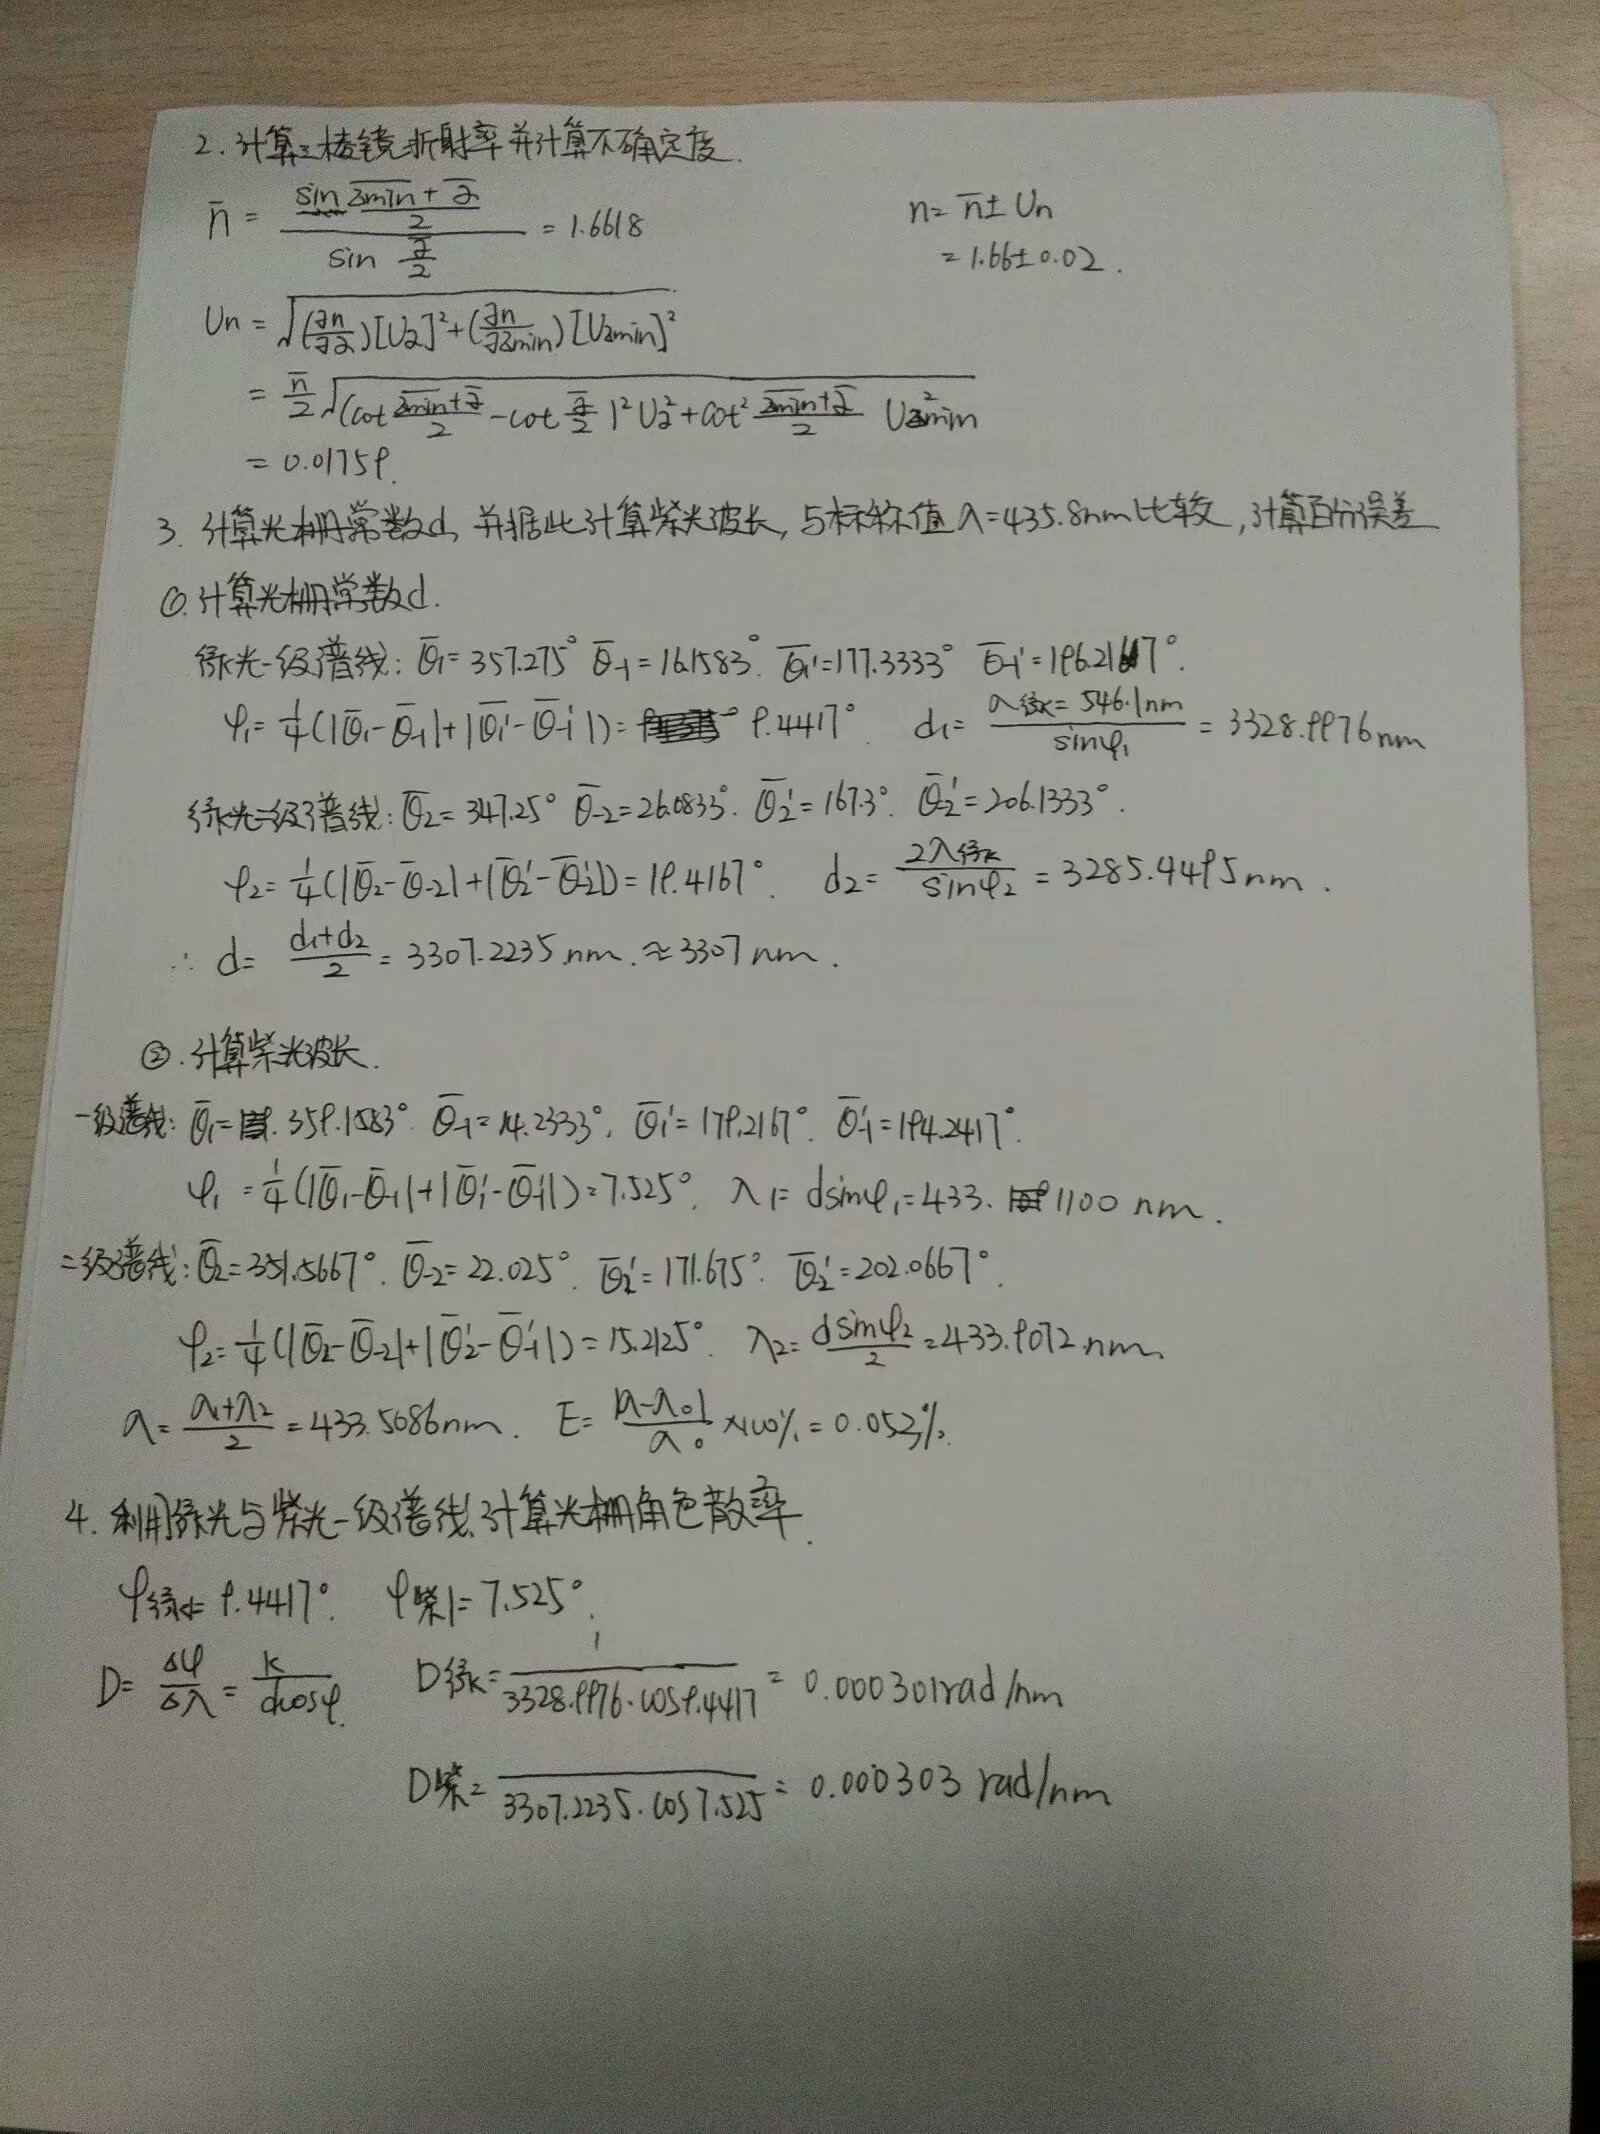 2. 计算三棱镜折射率并计算不确定度.
n̄ = sin (δ̄min + ᾱ)/2 / sin ᾱ/2 = 1.6618
n = n̄ ± Un
= 1.66 ± 0.02.
Un = √((∂n/∂α)[Uα]² + (∂n/∂δmin)[Uδmin]²)
= n̄/2 √((cot (δ̄min+ᾱ)/2 - cot ᾱ/2)² Uα² + cot² (δ̄min+ᾱ)/2 U²δmin)
= 0.01759.
3. 计算光栅常数d, 并据此计算紫光波长, 与标称值 λ=435.8nm比较, 计算百分误差
①. 计算光栅常数d.
绿光一级谱线: θ̄1 = 357.275° θ̄-1 = 16.1583°. θ̄1' = 177.3333° θ̄-1' = 196.2167°.
φ1 = 1/4(|θ̄1 - θ̄-1| + |θ̄1' - θ̄-1'|) = 9.4417°. d1 = λ绿 = 546.1nm / sinφ1 = 3328.9976nm
绿光二级谱线: θ̄2 = 347.25° θ̄-2 = 26.0833°. θ̄2' = 167.3°. θ̄2' = 206.1333°.
φ2 = 1/4(|θ̄2 - θ̄-2| + |θ̄2' - θ̄-2'|) = 19.4167°. d2 = 2λ绿/sinφ2 = 3285.4495nm.
∴ d = (d1+d2)/2 = 3307.2235nm. ≈ 3307nm.
②. 计算紫光波长.
一级谱线: θ̄1 = 359.1583° θ̄-1 = 14.2333°, θ̄1' = 179.2167°. θ̄-1' = 194.2417°.
φ1 = 1/4(|θ̄1 - θ̄-1| + |θ̄1' - θ̄-1'|) = 7.525°. λ1 = dsinφ1 = 433.1100nm.
二级谱线: θ̄2 = 351.5667°. θ̄-2 = 22.025°. θ̄2' = 171.675°. θ̄2' = 202.0667°.
φ2 = 1/4(|θ̄2 - θ̄-2| + |θ̄2' - θ̄-1'|) = 15.2125°. λ2 = dsinφ2/2 = 433.9072nm.
λ = (λ1+λ2)/2 = 433.5086nm. E = |λ-λ0|/λ0 ×100% = 0.053%.
4. 利用绿光与紫光一级谱线, 计算光栅角色散率.
φ绿1 = 9.4417°. φ紫1 = 7.525°.
D = Δφ/Δλ = k/dcosφ. D绿 = 1/(3328.9976·cos9.4417) = 0.000301rad/nm
D紫 = /(3307.2235·cos7.525) = 0.000303 rad/nm